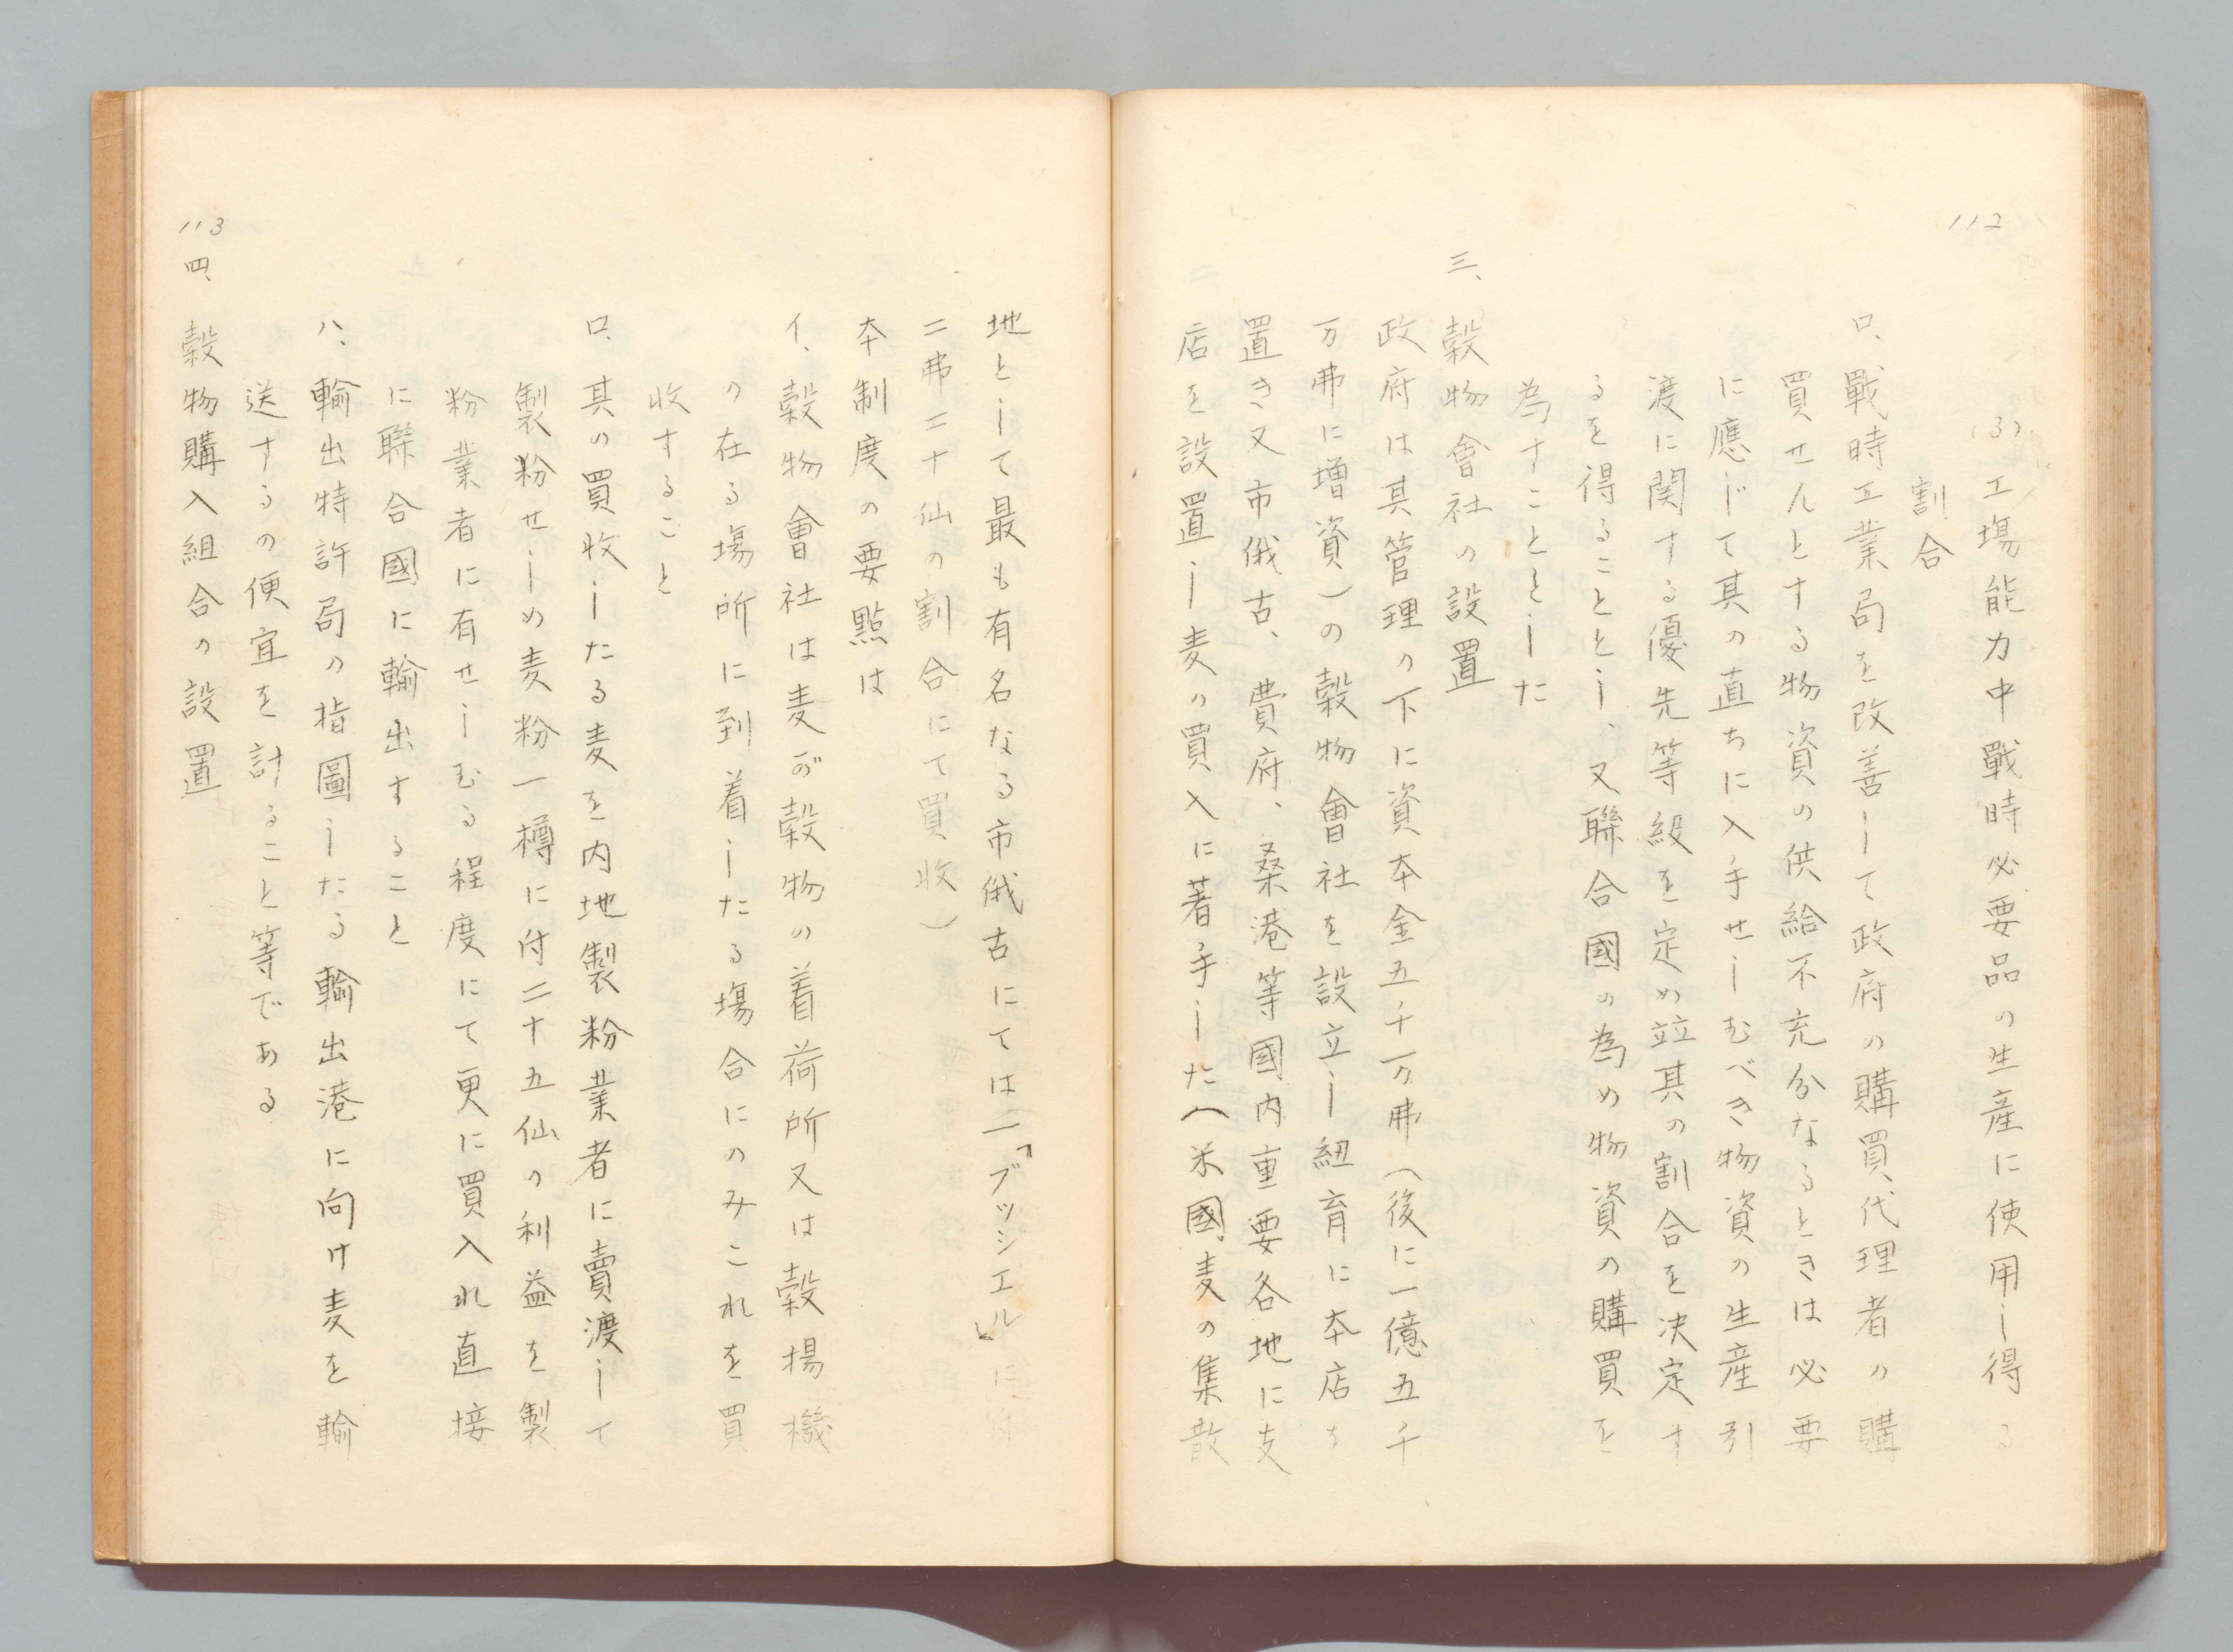 112
(3)工場能力中戰時必要品の生産に使用し得る
割合
ロ、戰時工業局を改善して政府の購買代理者の購
買せんとする物資の供給不充分なるときは必要
に應じて其の直ちに入手せしむべき物資の生産引
渡に関する優先等級を定め竝其の割合を決定す
るを得ることとし、又聯合國の為め物資の購買を
為すこととした
三、穀物會社の設置
政府は其管理の下に資本金五千万弗(後に一億五千
万弗に増資)の穀物會社を設立し紐育に本店を
置き又市俄古、費府、桑港等國内重要各地に支
店を設置し麦の買入に著手した(米國麦の集散
地として最も有名なる市俄古にては一「ブッシエル」に付
二弗二十仙の割合にて買收)
本制度の要點は
イ、穀物會社は麦が穀物の着荷所又は穀揚機
の在る場所に到着したる場合にのみこれを買
收すること
ロ、其の買收したる麦を内地製粉業者に賣渡して
製粉せしめ麦粉一樽に付二十五仙の利益を製
粉業者に有せしむる程度にて更に買入れ直接
に聯合國に輸出すること
ハ、輸出特許局の指圖したる輸出港に向け麦を輸
送するの便宜を計ること等である
113
四、穀物購入組合の設置